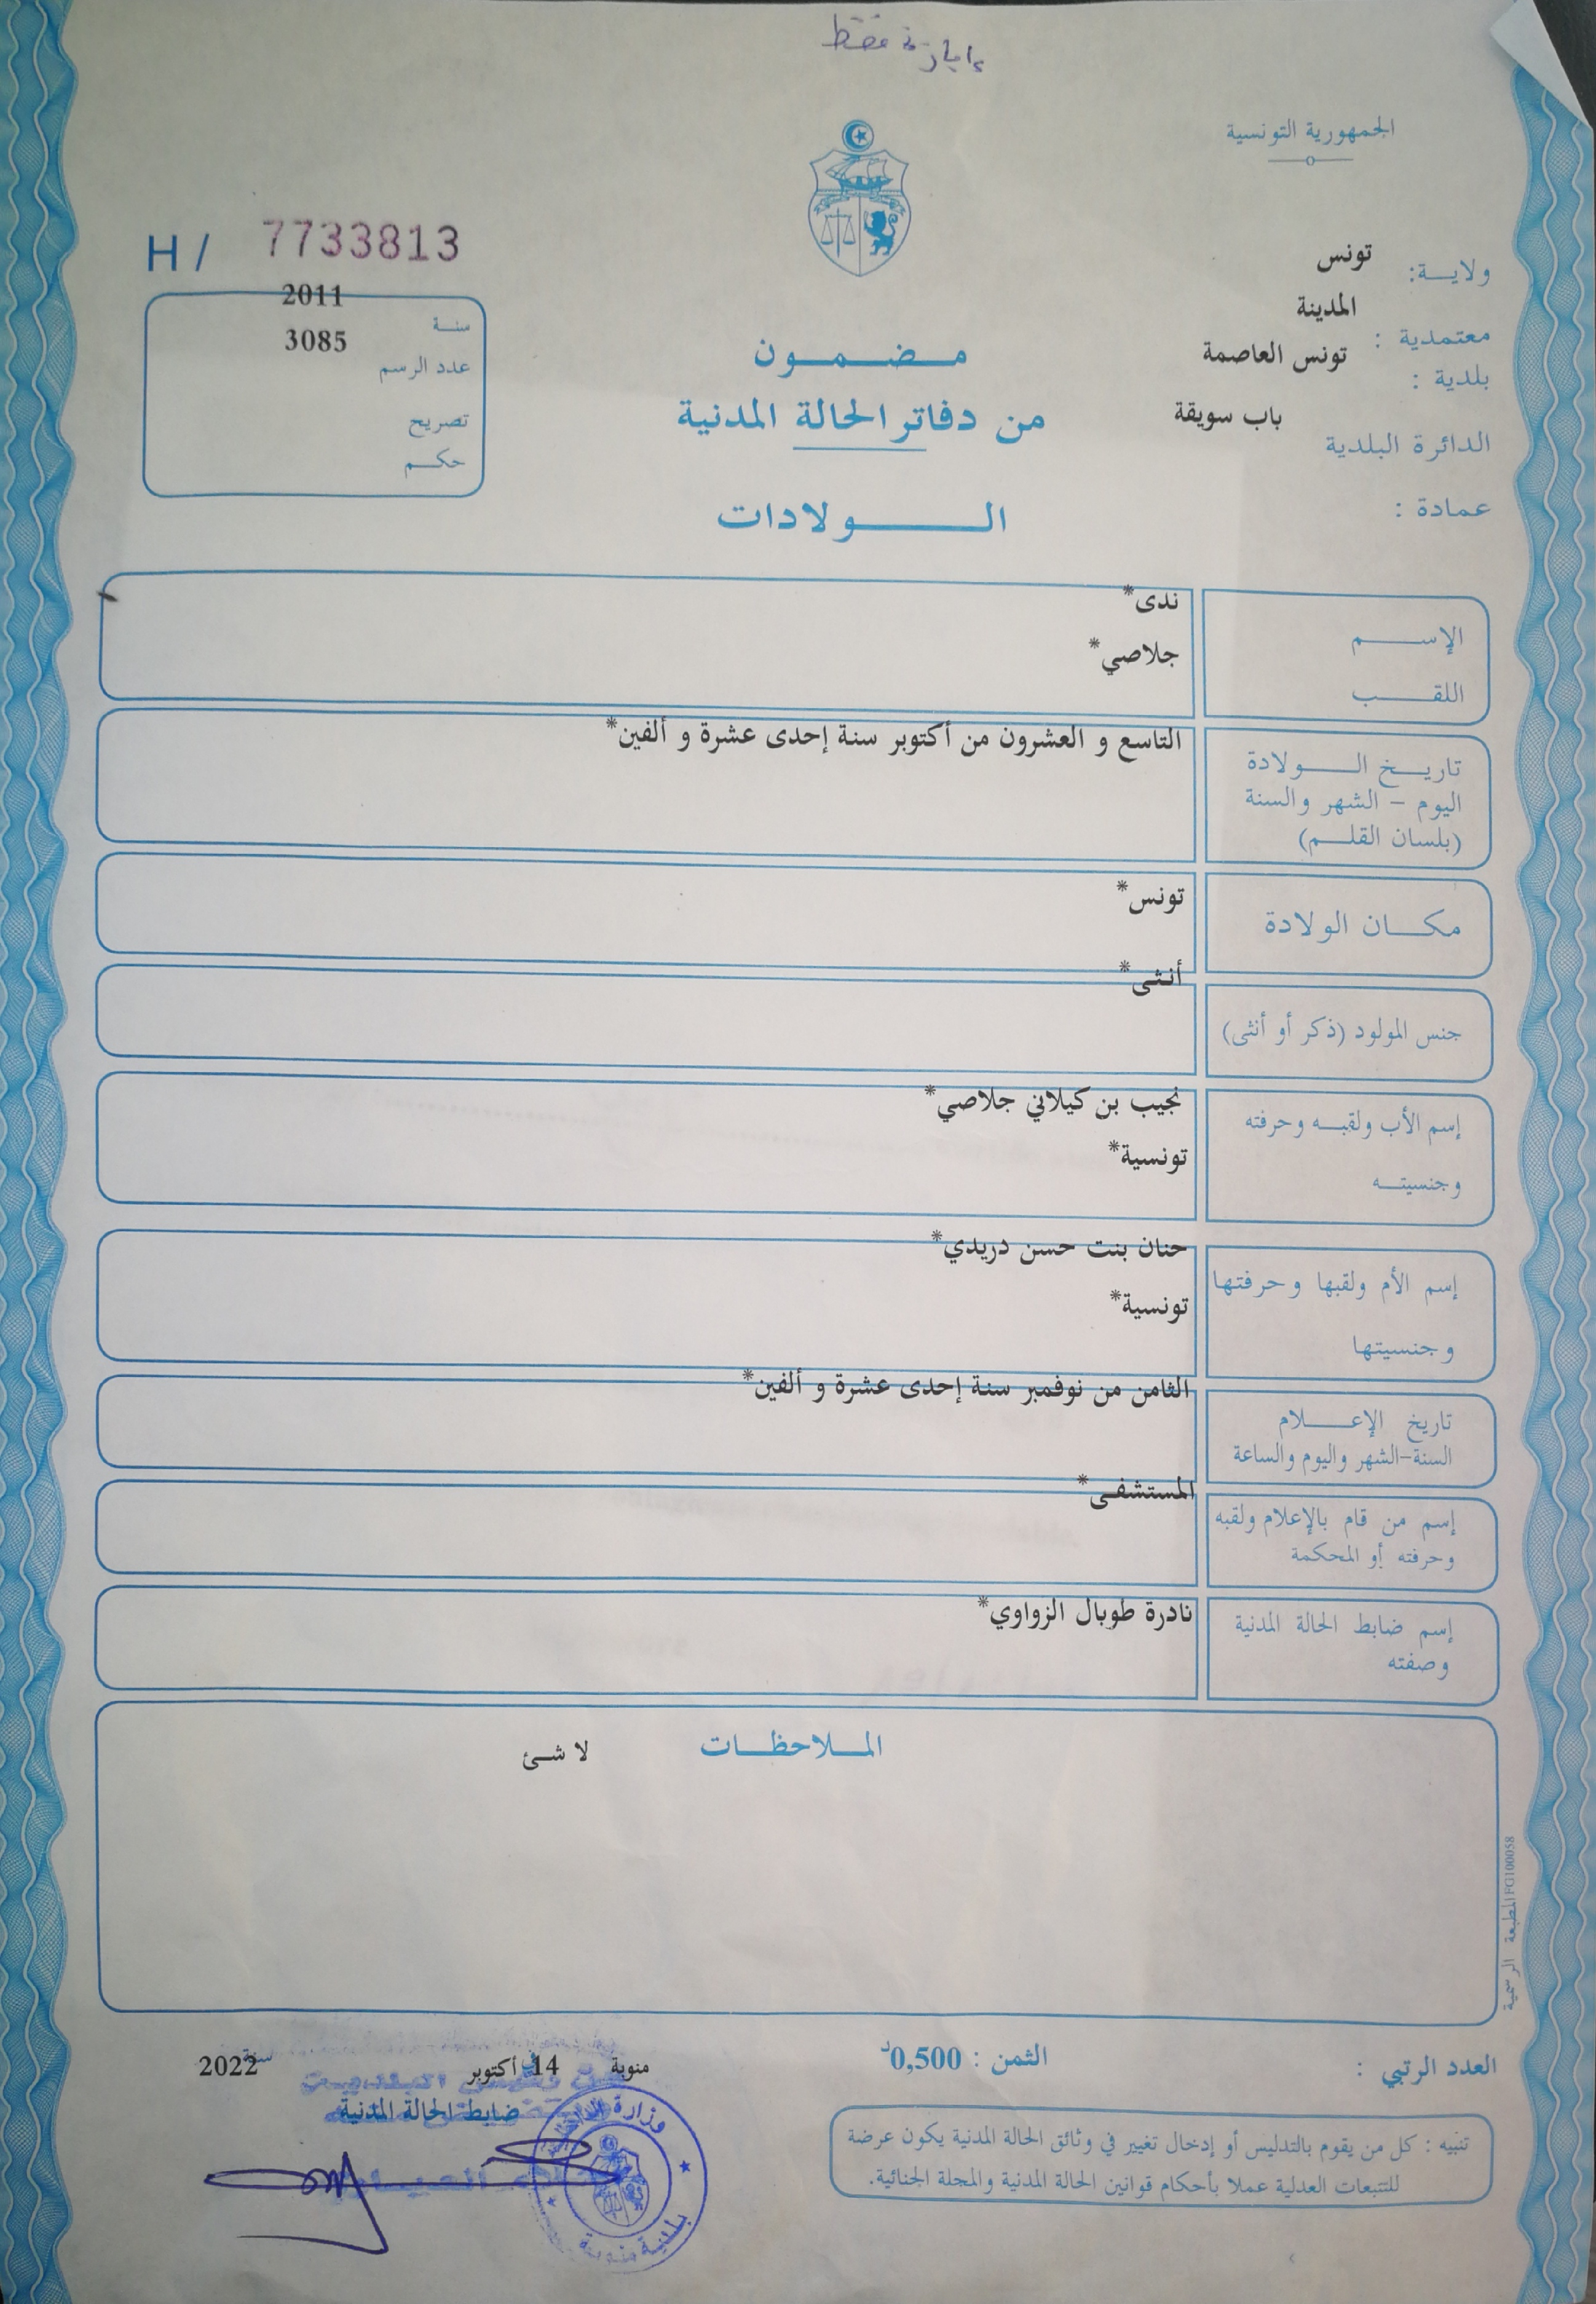 الجمهورية التونسية
ولايـــة: تونس
معتمدية : المدينة
بلدية : تونس العاصمة
الدائرة البلدية باب سويقة
عمادة :
H / 7733813
سنـة 2011
عدد الرسم 3085
تصريح
حكـم
مـضـمـون
من دفاتر الحالة المدنية
الـولادات
الإسـم ندى*
اللقـب جلاصي*
تاريـخ الـولادة التاسع و العشرون من أكتوبر سنة إحدى عشرة و ألفين*
اليوم - الشهر والسنة
(بلسان القلـم)
مكـان الولادة تونس*
جنس المولود (ذكر أو أنثى) أنثى*
إسم الأب ولقبـه وحرفته نجيب بن كيلاني جلاصي*
وجنسيتـه تونسية*
إسم الأم ولقبها وحرفتها حنان بنت حسن دريدي*
وجنسيتها تونسية*
تاريخ الإعـلام الثامن من نوفمبر سنة إحدى عشرة و ألفين*
السنة-الشهر واليوم والساعة
إسم من قام بالإعلام ولقبه المستشفى*
وحرفته أو المحكمة
إسم ضابط الحالة المدنية نادرة طوبال الزواوي*
وصفته
المـلاحظـات لا شئ
المطبعة الرسمية FG100058
العدد الرتبي :
الثمن : 0,500د
منوبة في 14 أكتوبر سنة 2022
ضابط الحالة المدنية
وزارة الداخلية
بلدية منوبة
تنبيه : كل من يقوم بالتدليس أو إدخال تغيير في وثائق الحالة المدنية يكون عرضة
للتتبعات العدلية عملا بأحكام قوانين الحالة المدنية والمجلة الجنائية.